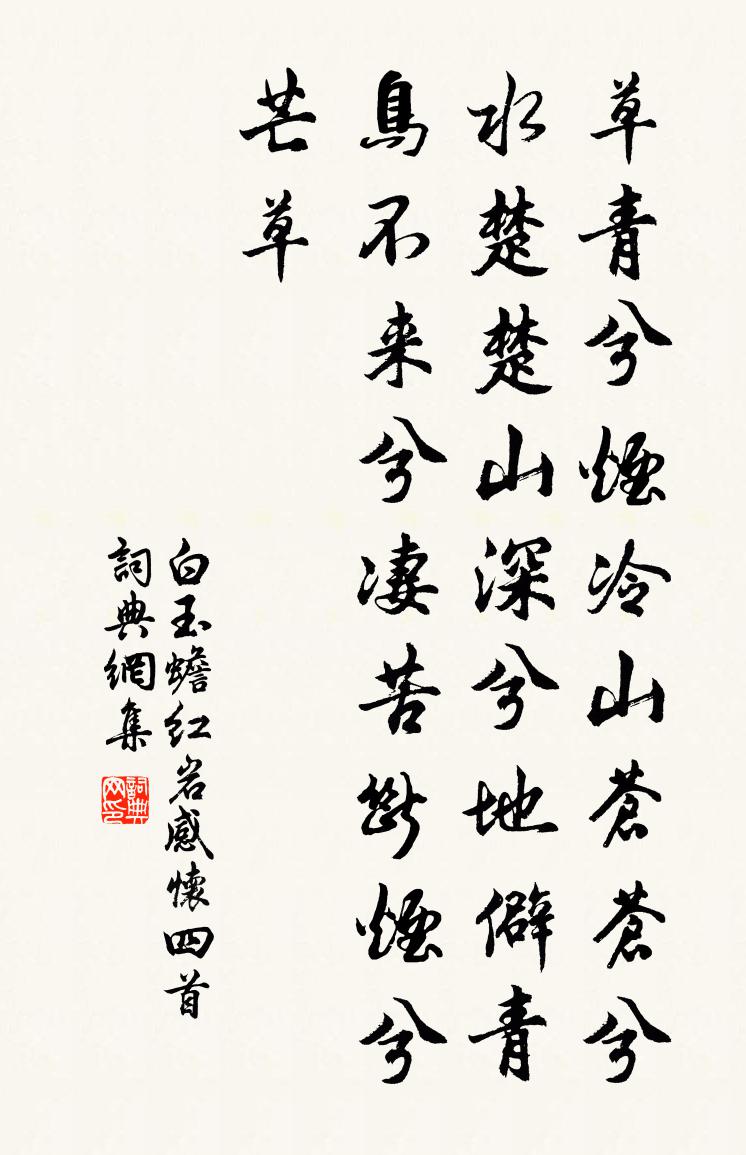 草青兮煙冷山蒼蒼兮
水楚楚山深兮地僻青
鳥不来兮凄苦斷煙兮
芒草
白玉蟾红岩感懷四首
詞典網集
詞典网印